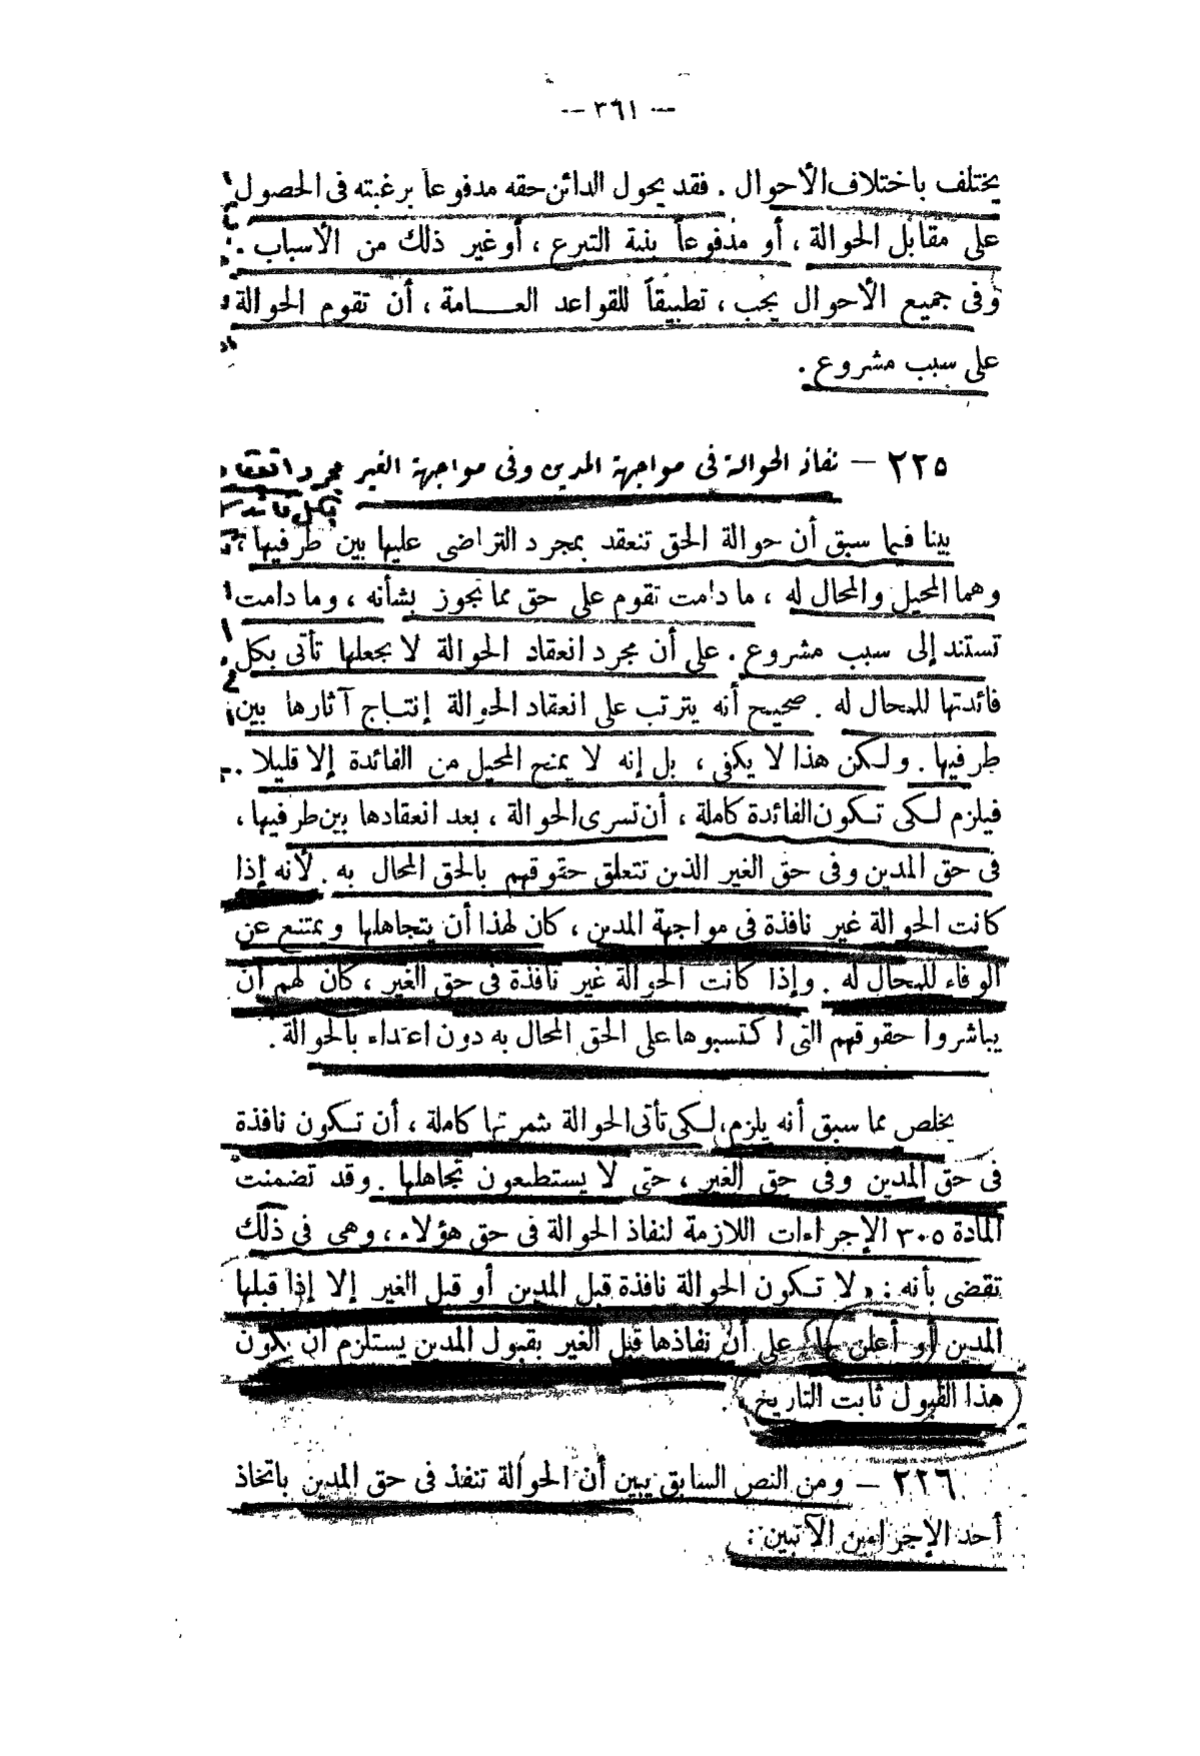 — ٣٦١ —
يختلف باختلاف الأحوال . فقد يحول الدائن حقه مدفوعاً برغبته فى الحصول
على مقابل الحوالة ، أو مدفوعاً بنية التبرع ، أو غير ذلك من الأسباب .
وفى جميع الأحوال يجب ، تطبيقاً للقواعد العـــامة ، أن تقوم الحوالة
على سبب مشروع .
٢٢٥ — نفاذ الحوالة فى مواجهة المدين وفى مواجهة الغير مجرد
بينا فيما سبق أن حوالة الحق تنعقد بمجرد التراضى عليها بين طرفيها ،
وهما المحيل والمحال له ، ما دامت تقوم على حق مما يجوز بشأنه ، وما دامت
تستند إلى سبب مشروع . على أن مجرد انعقاد الحوالة لا يجعلها تأتى بكل
فائدتها للمحال له . صحيح أنه يترتب على انعقاد الحوالة إنتاج آثارها بين
طرفيها . ولكن هذا لا يكفى ، بل إنه لا يمنح المحيل من الفائدة إلا قليلا .
فيلزم لكى تكون الفائدة كاملة ، أن تسرى الحوالة ، بعد انعقادها بين طرفيها ،
فى حق المدين وفى حق الغير الذين تتعلق حقوقهم بالحق المحال به . لأنه إذا
كانت الحوالة غير نافذة فى مواجهة المدين ، كان لهذا أن يتجاهلها ويمتنع عن
الوفاء للمحال له . وإذا كانت الحوالة غير نافذة فى حق الغير ، كان لهم أن
يباشروا حقوقهم التى اكتسبوها على الحق المحال به دون اعتداء بالحوالة .
يخلص مما سبق أنه يلزم ، لكى تأتى الحوالة ثمرتها كاملة ، أن تكون نافذة
فى حق المدين وفى حق الغير ، حتى لا يستطيعون تجاهلها . وقد تضمنت
المادة ٣٠٥ الإجراءات اللازمة لنفاذ الحوالة فى حق هؤلاء ، وهى فى ذلك
تقضى بأنه : « لا تكون الحوالة نافذة قبل المدين أو قبل الغير إلا إذا قبلها
المدين أو أعلن بها . على أن نفاذها قبل الغير بقبول المدين يستلزم أن يكون
هذا القبول ثابت التاريخ » .
٢٢٦ — ومن النص السابق يبين أن الحوالة تنفذ فى حق المدين باتخاذ
أحد الإجراءين الآتيين :